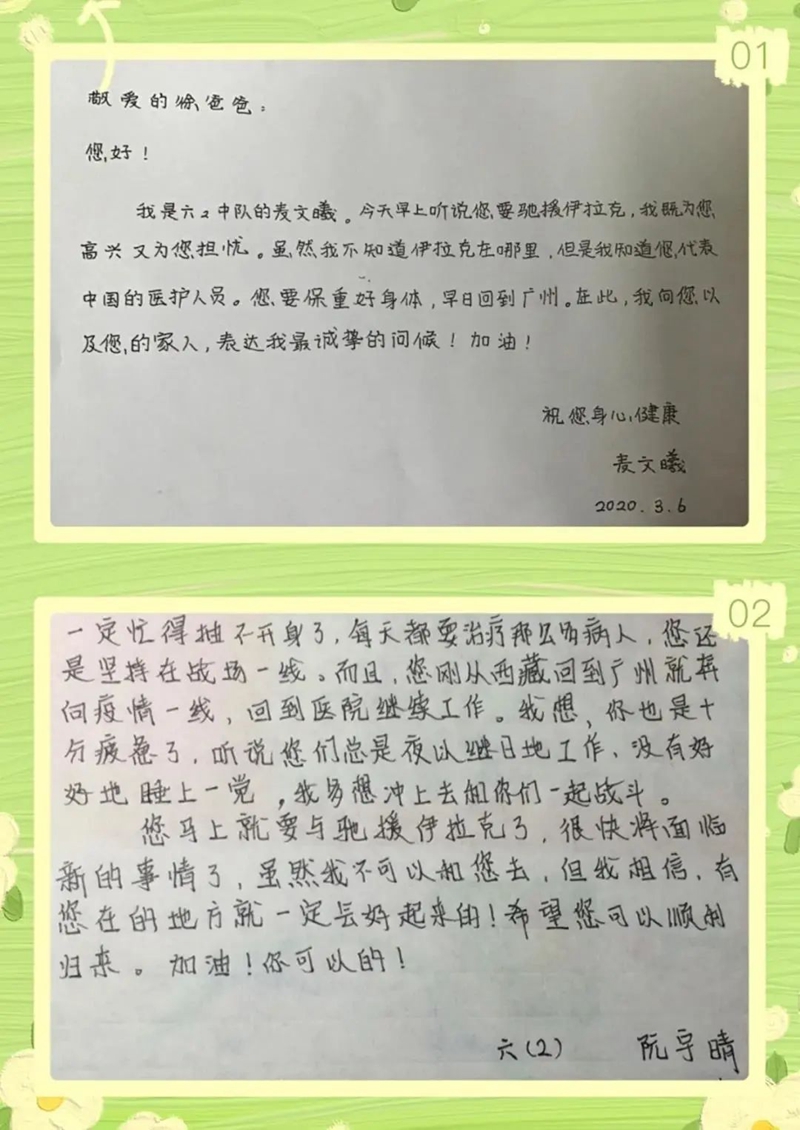 01
敬爱的徐爸爸。
您好！
我是六2中队的麦文曦。今天早上听说您要驰援伊拉克，我既为您
高兴又为您担忧。虽然我不知道伊拉克在哪里，但是我知道您代表
中国的医护人员。您要保重好身体，早日回到广州。在此，我向您以
及您的家人，表达我最诚挚的问候！加油！
祝您身心健康
麦文曦
2020.3.6
02
一定忙得抽不开身了，每天都要治疗那么多病人，您还
是坚持在战场一线。而且，您刚从西藏回到广州就奔
向疫情一线，回到医院继续工作。我想，你也是十
分疲惫了，听说您们总是夜以继日地工作、没有好
好地睡上一觉，我多想冲上去和你们一起战斗。
您马上就要与驰援伊拉克了，很快将面临
新的事情了，虽然我不可以和您去，但我相信，有
您在的地方就一定会好起来的！希望您可以顺利
归来。加油！你可以的！
六(2) 阮宇晴